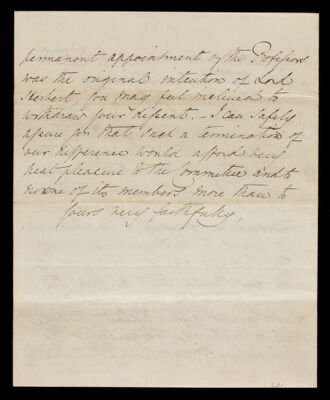 permanent appointment of the Professors
was the original intention of Lord
Herbert, you may feel inclined to
withdraw your dissent. – I can safely
assure you that such a termination of
our difference would afford very
great pleasure to the Committee and to
none of its members more than to
Yours very faithfully,